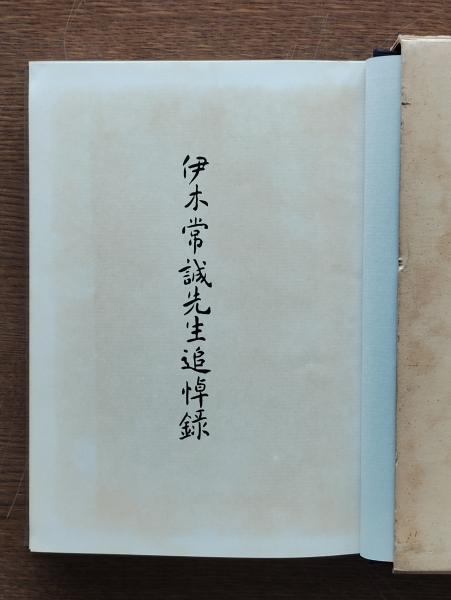 伊木常誠先生追悼錄